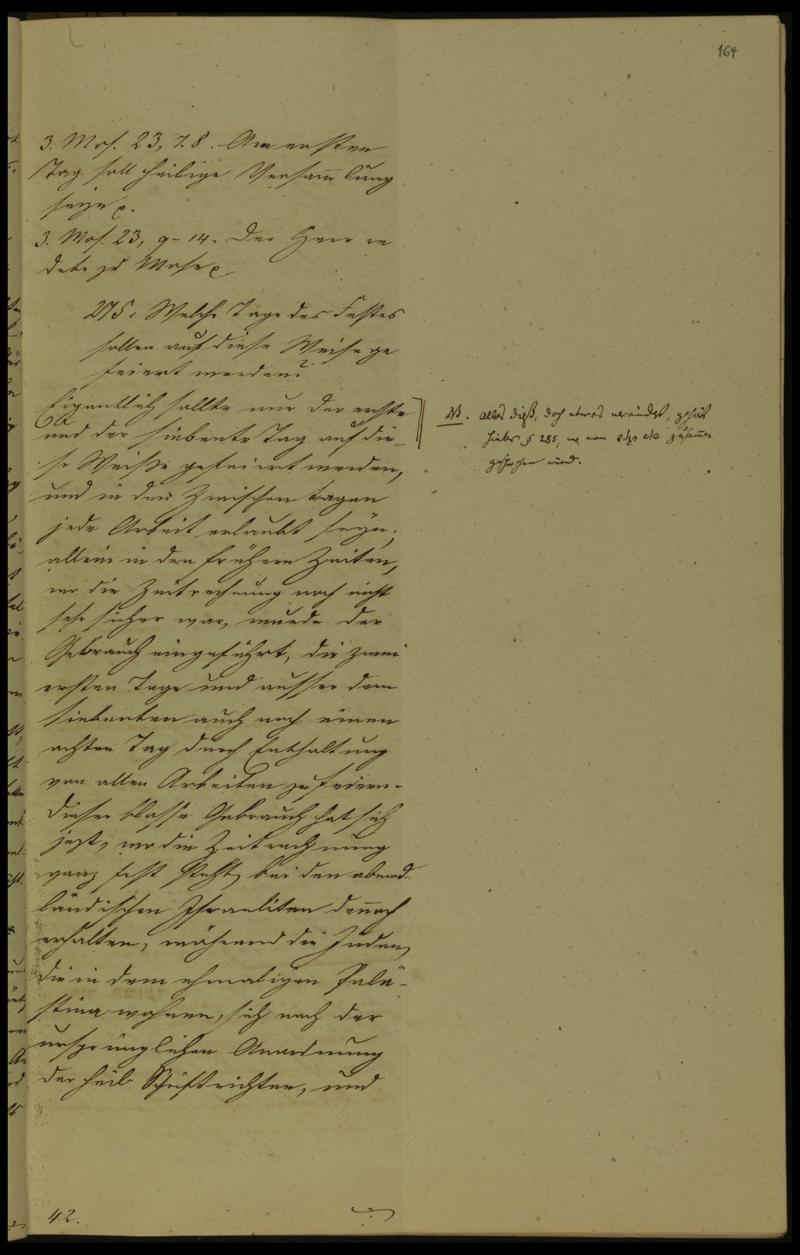 164
3. Mos. 23, 7.8. Am ersten
Tag soll heilige Versam̄lung
seyn
3. Mos. 23, 9-14. Der Herr re
dete zu Mose
275. Welche Tage des Festes
sollen auf diese Weise ge
feiert werden?
Eigentlich sollte nur der erste
und der siebente Tag auf die-
se Weise gefeiert werden,
und in den Zwischentagen
jede Arbeit erlaubt seyn;
allein in den frühern Zeiten,
wo die Zeitrechnung noch nicht
sehr sicher war, wurde der
Gebrauch eingeführt, die zwei
ersten Tage und ausser dem
siebenten auch noch einen
achten Tag durch Enthaltung
von allen Arbeiten zu feiern.
Dieser blosse Gebrauch hat sich
jezt, wo die Zeitrechnung
ganz fest steht, bei den abend
ländischen Israeliten dennoch
erhalten, während die Juden,
die in dem ehmaligen Palä-
stina wohnen, sich nach der
ursprünglichen Anordnung
der heil. Schrift richten, und
NB. alles dieß, doch etwas verändert, gehört
hinter § 285, wo von
gesprochen wird.
42.